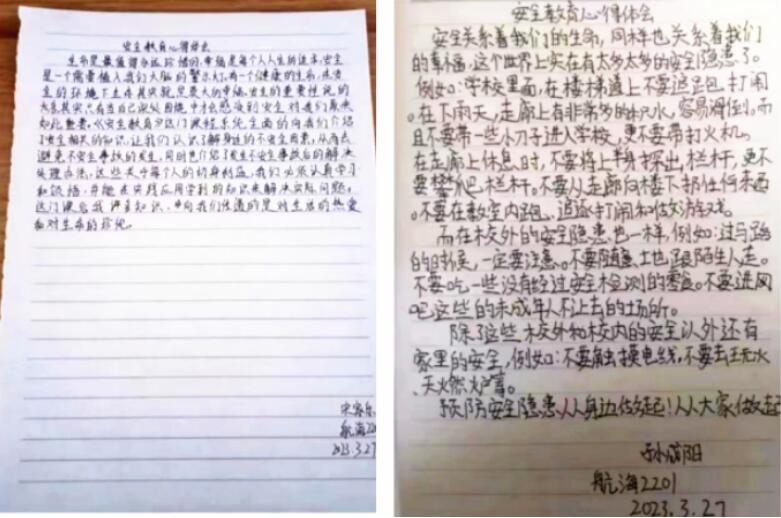 安全教育心得体会
生命是最值得永远珍惜的,幸福是每个人人生的追求,安全
是一个需要植入我们大脑的警示灯。有一个健康的生命,在安
全的环境下生存其实就是最大的幸福。安全的重要性说的
如此重要。《安全教育》这门课程系统全面的向我们介绍
了安全相关的知识,让我们认识了解身边的不安全因素,从而去
避免不安全事故的发生,同时也介绍了发生不安全事故后的解决
处理办法,这些关乎每个人的切身利益,我们必须认真学习
和领悟,并能在实践应用学到的知识来解决实际问题。
向我们传递的是对生活的热爱
和对生命的珍视。
航海220
2023.3.27
安全教育心得体会
安全关系着我们的生命,同样也关系着我们
的幸福,这个世界上实在有太多太多的安全隐患了。
例如:学校里面,在楼梯道上不要追跑打闹
。在下雨天,走廊上有非常多的积水,容易滑倒。而
且不要带一些小刀子进入学校,更不要带打火机。
在走廊上休息时,不要将上半身探出栏杆,更不
要攀爬栏杆。不要从走廊向楼下扔任何东西
。不要在教室内跑、追逐打闹和做游戏。
而在校外的安全隐患也一样,例如:过马路
的时候,一定要注意。不要随意上也跟陌生人走。
不要吃一些没有经过安全检测的零食。不要进网
吧这些的未成年人不让去的场所。
除了这些校外和校内的安全以外还有
家里的安全,例如:不要触摸电线,不要去玩水
、天火燃火炉等。
预防安全隐患,从身边做起!从大家做起
孙
阳
航海2201
2023.3.27